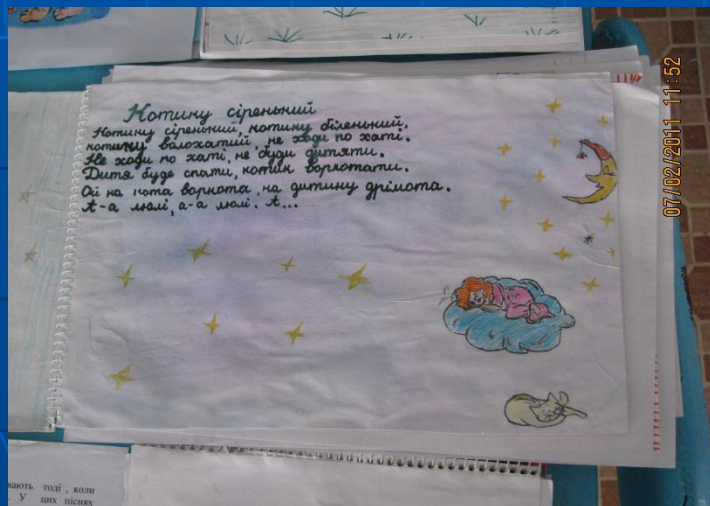 Котику сіренький
Котику сіренький, котику біленький.
котику волохатий, не ходи по хаті.
Не ходи по хаті, не буди дитяти.
Дитя буде спати, котик воркотати.
Ой на кота воркота, на дитину дрімота.
А-а люлі, а-а люлі. А...
07/02/2011 11:52
вають тоді, коли
. У цих піснях